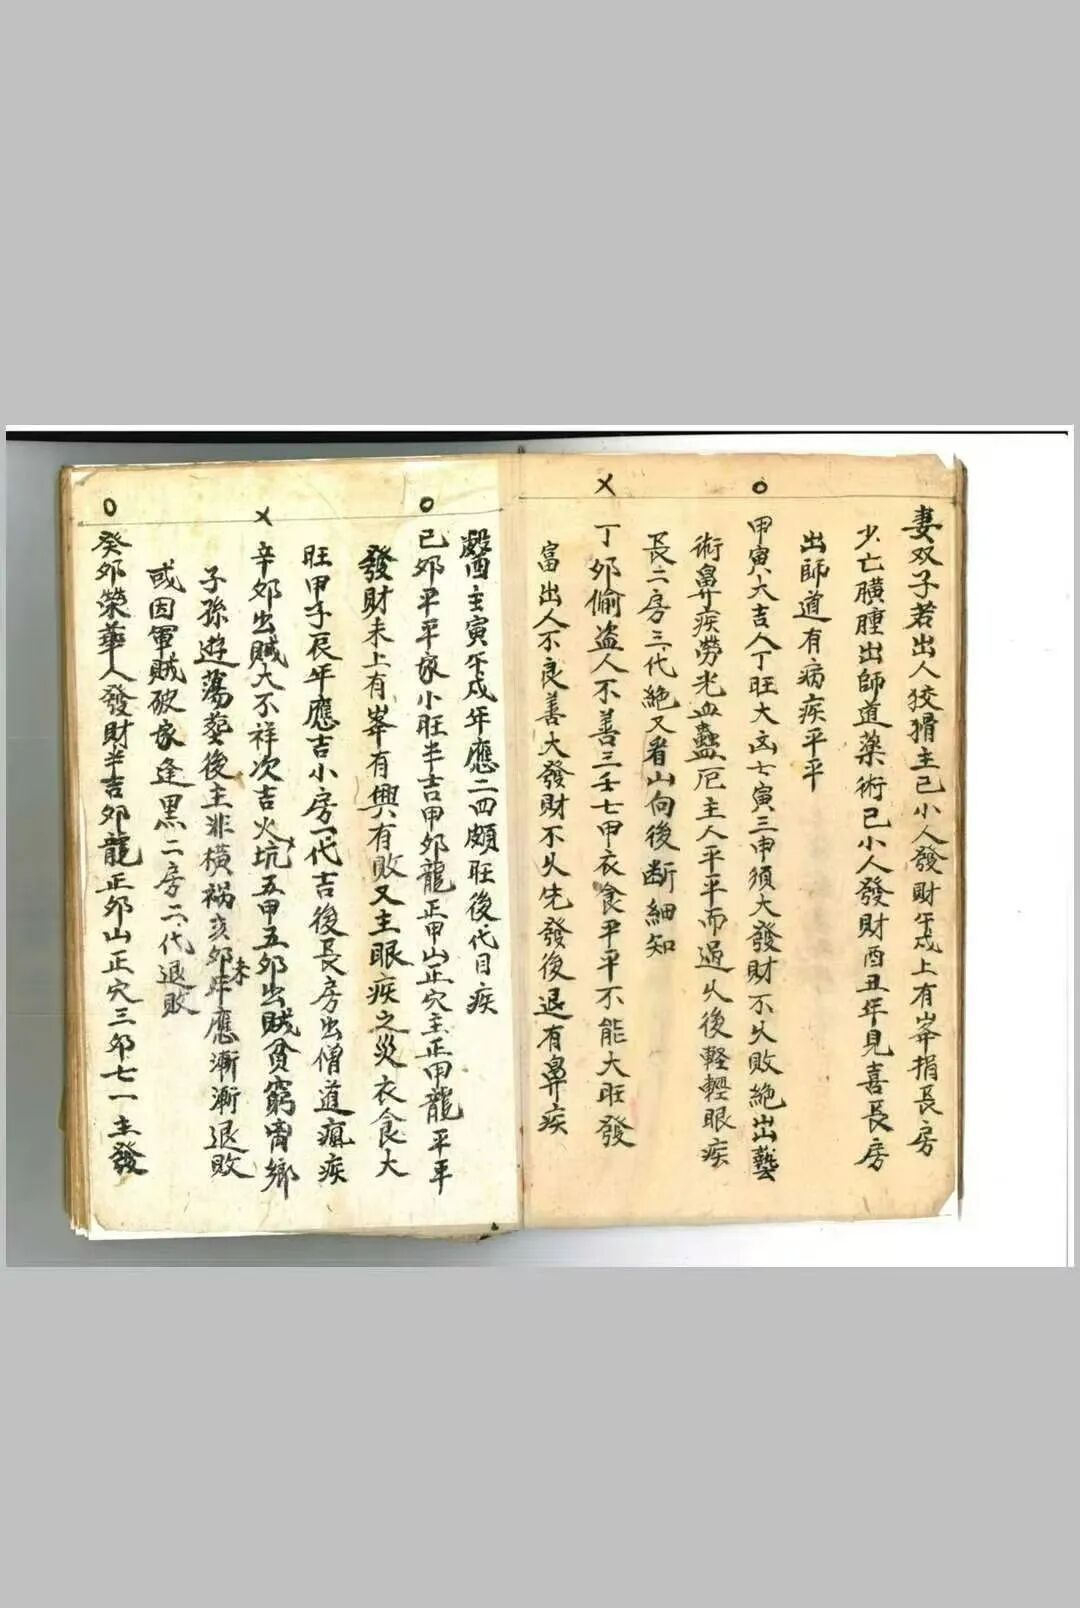 妻双子若出人狡猾主己小人發財午戌上有峯損長房
少亡膿腫出師道藥術己小人發財酉丑年見喜長房
出師道有病疾平平
甲寅大吉人丁旺大凶七寅三申須大發財不久敗絕出藝
術鼻疾勞光血蠱厄主人平平而過久後輕輕眼疾
長二房三代絕又看山向後断細知
丁卯偷盗人不善三壬七甲衣食平平不能大旺發
富出人不良善大發財不久先發後退有鼻疾
主寅午戌年應二四頗旺後代目疾
己卯平平家小旺半吉甲卯龍正甲山正穴主正甲龍平平
發財未上有峯有興有敗又主眼疾之災衣食大
旺甲子辰年應吉小房一代吉後長房出僧道瘋疾
辛卯出賊大不祥次吉火坑五甲五卯出賊貧窮离鄉
子孫遊蕩葬後主非橫禍亥卯未年應漸漸退敗
或因軍賊破家逢黑二房二代退敗
癸卯榮華人發財半吉卯龍正卯山正穴三卯七一主發